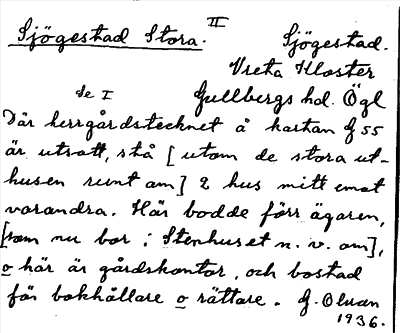 Sjögestad Stora. II Sjögestad.
Vreta Kloster
se I Gullbergs hd. Ögl
Där herrgårdstecknet å kartan G 55
är utsatt, stå [utom de stora ut-
husen runt om] 2 hus mitt emot
varandra. Här bodde förr ägaren,
[som nu bor i Stenhuset n. v. om],
o här är gårdskontor, och bostad
för bokhållare o rättare. G. Olson
1936.